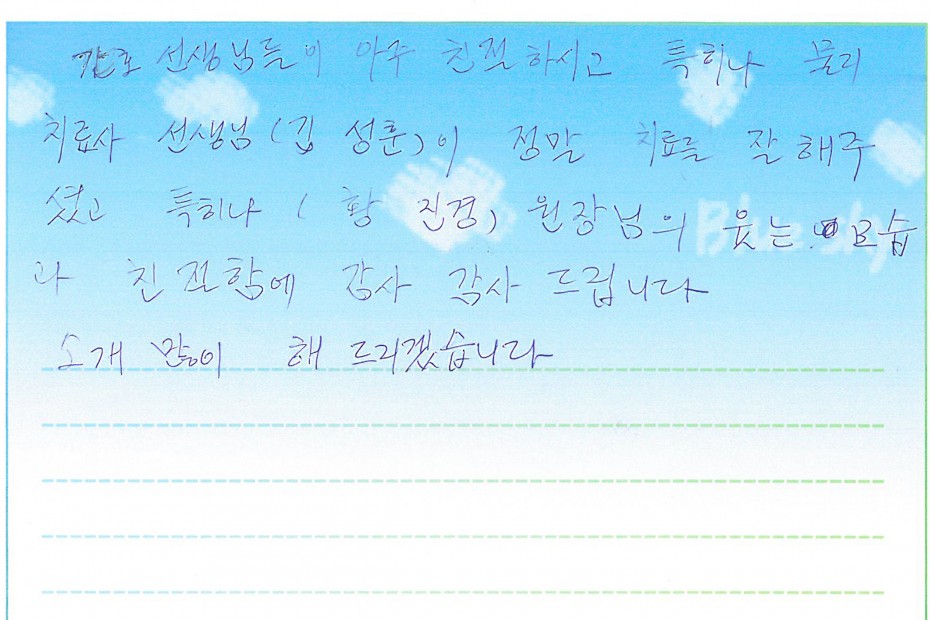 간호 선생님들이 아주 친절하시고 특히나 물리
치료사 선생님(김 성훈)이 정말 치료를 잘 해주
셨고 특히나 (황 진경) 원장님의 웃는 모습
과 친절함에 감사 감사 드립니다
소개 많이 해 드리겠습니다
Blue sky